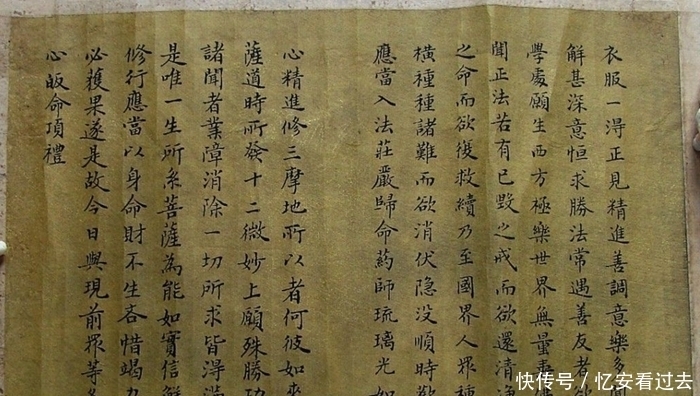 衣服一得正見精進善調意樂多聞
解甚深意恒求勝法常遇善友者欲
學處願生西方極樂世界無量壽佛
聞正法若有已毀之戒而欲還清淨
之命而欲復救續乃至國界人眾種
橫種種諸難而欲消伏隐没順時歡
應當入法莊嚴歸命藥師琉璃光如
心精進修三摩地所以者何彼如來
薩道時所發十二微妙上願殊勝功
諸聞者業障消除一切所求皆得滿
是唯一生所系菩薩為能如實信解
修行應當以身命財不生吝惜竭力
必獲果遂是故今日與現前眾等各
心皈命頂禮
快传号／忆安看过去